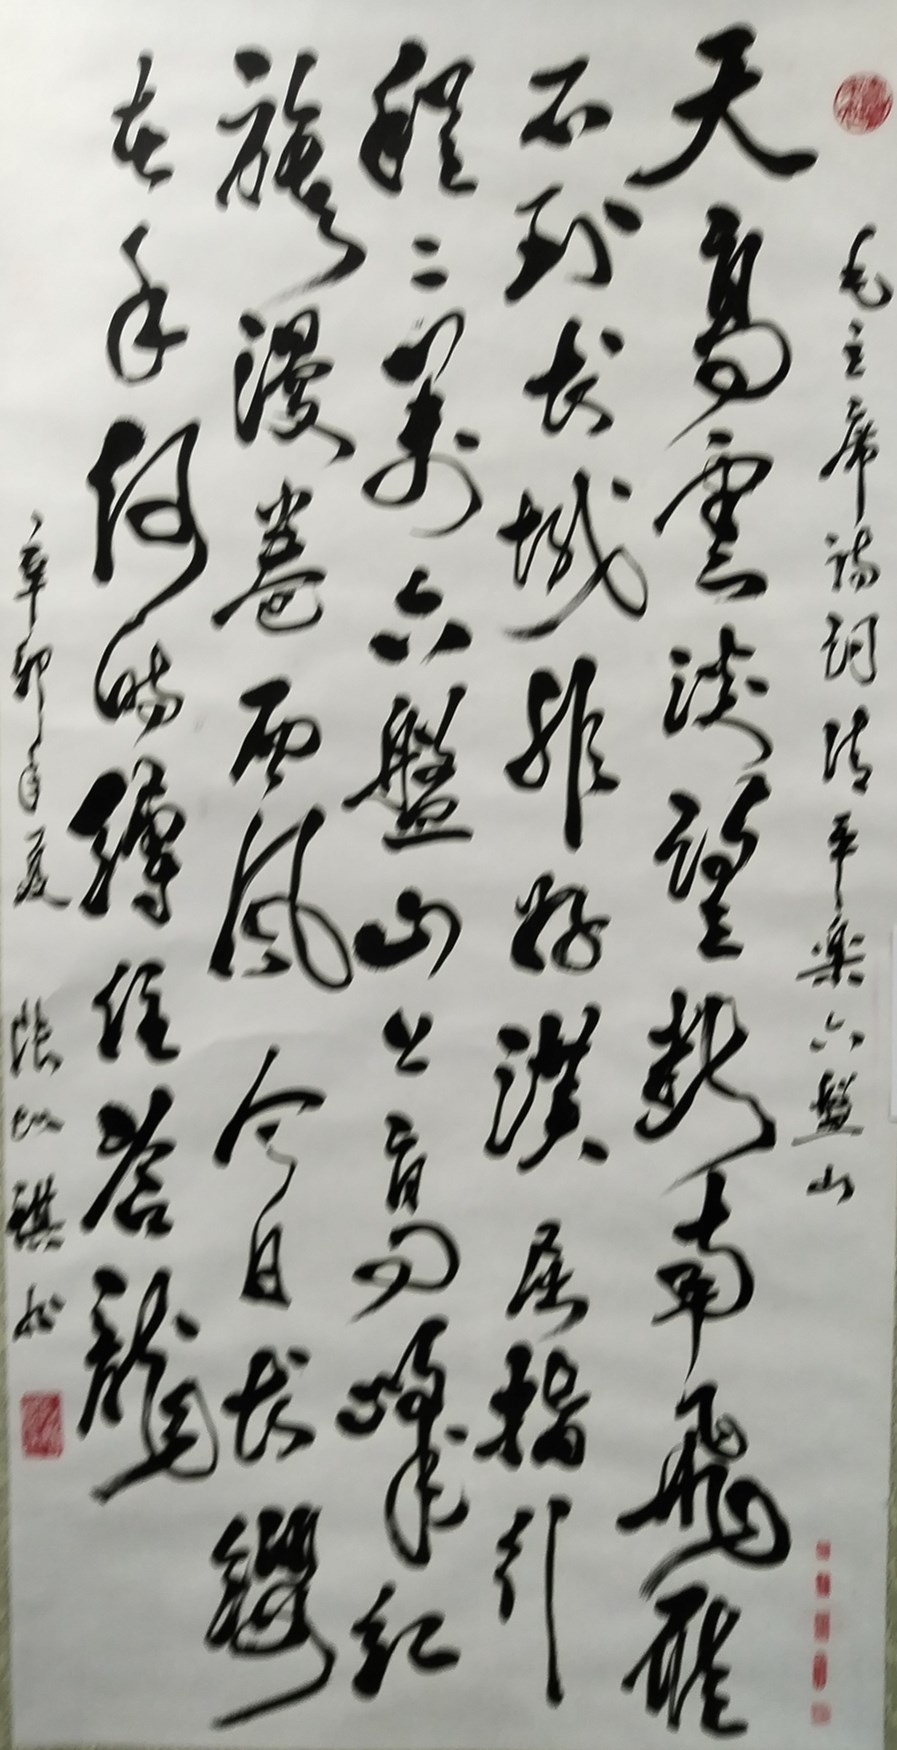 毛主席诗词清平楽六盤山
天高雲淡望斷南飛雁
不到长城非好漢屈指行
程二萬六盤山上高峰红
旗漫卷西风今日长缨
在手何時縛住蒼龍
辛卯年夏
张琪书